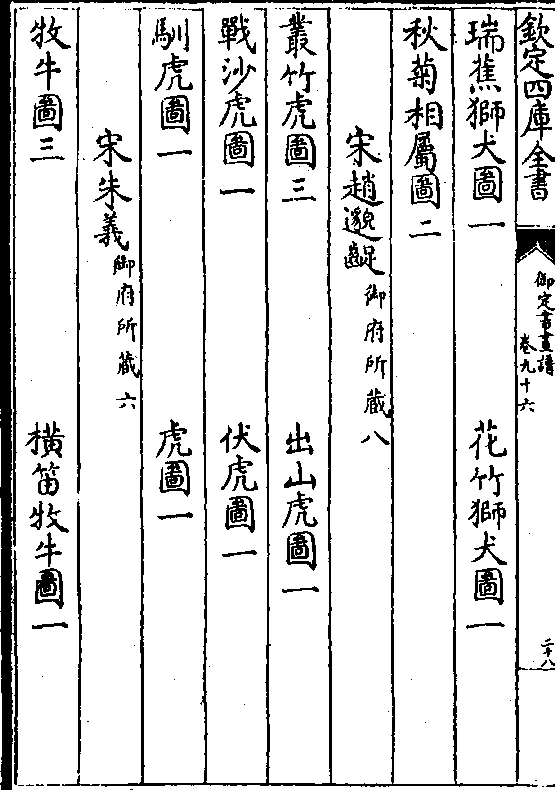 欽定四庫全書
御定書畫譜
卷九十六
二十八
瑞蕉獅犬圖一 花竹獅犬圖一
秋菊相屬圖二
宋趙邈齪御府所藏八
叢竹虎圖三 出山虎圖一
戰沙虎圖一 伏虎圖一
馴虎圖一 虎圖一
宋朱義御府所藏六
牧牛圖三 橫笛牧牛圖一